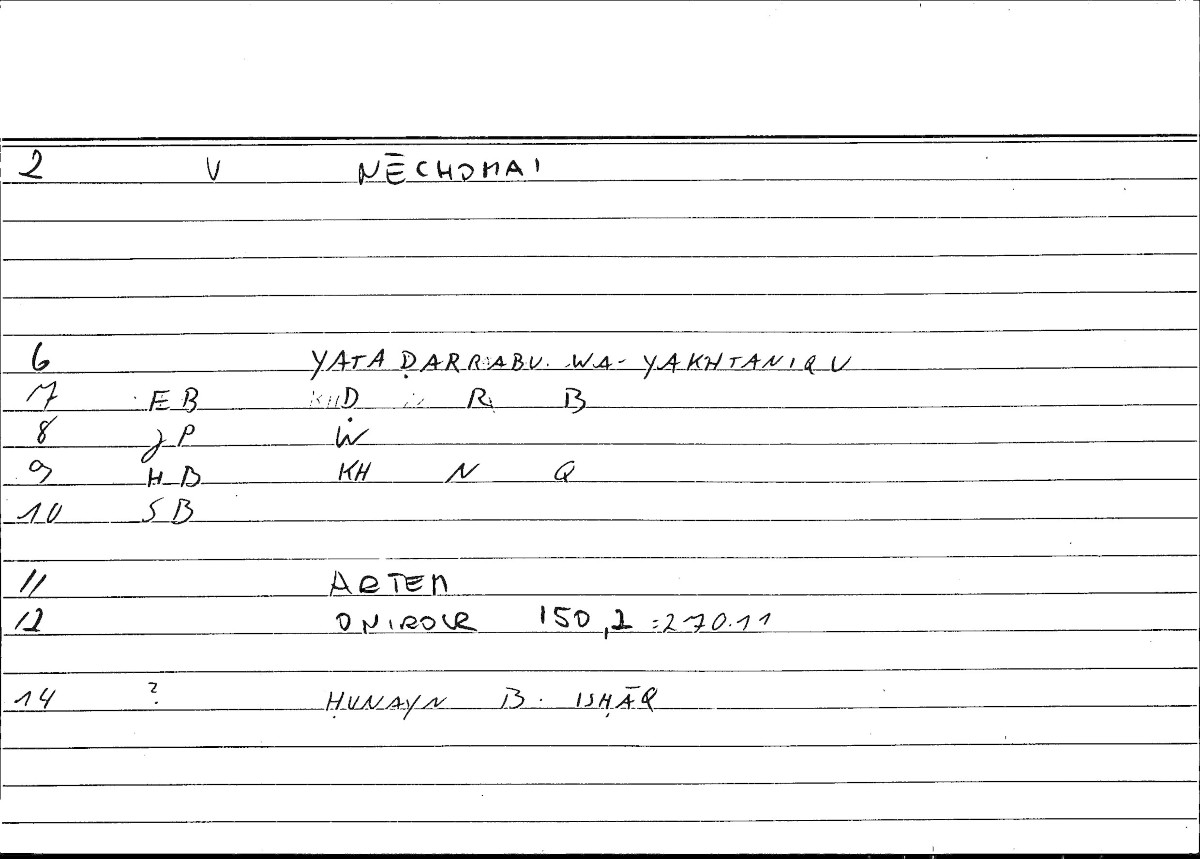 2 V NĒCHOMAI
6 YATAḌARRABU WA-YAKHTANIQU
7 EB Ḍ R B
8 JP W
9 HB KH N Q
10 SB
11 ARTEM
12 ONIROCR 150,2 =270.11
14 ? ḤUNAYN B. ISḤĀQ